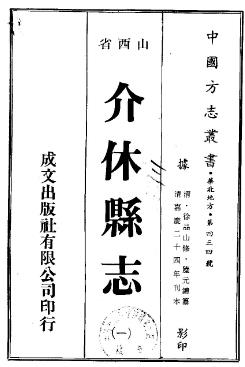 中國方志叢書•華北地方•第四三四號
據清•徐品山修•陸元鏸纂
清嘉慶二十四年刊本影印
山西省
介休縣志
(一)
成文出版社有限公司印行